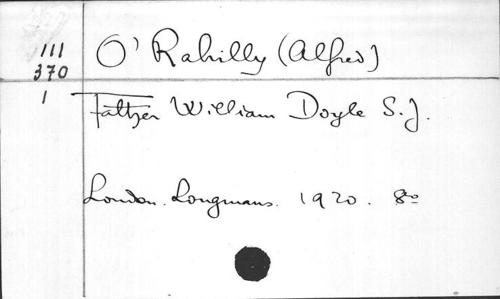 111 O' Rahilly (Alfred)
370
1 Father William Doyle S.J.
London. Longmans. 1920. 8vo